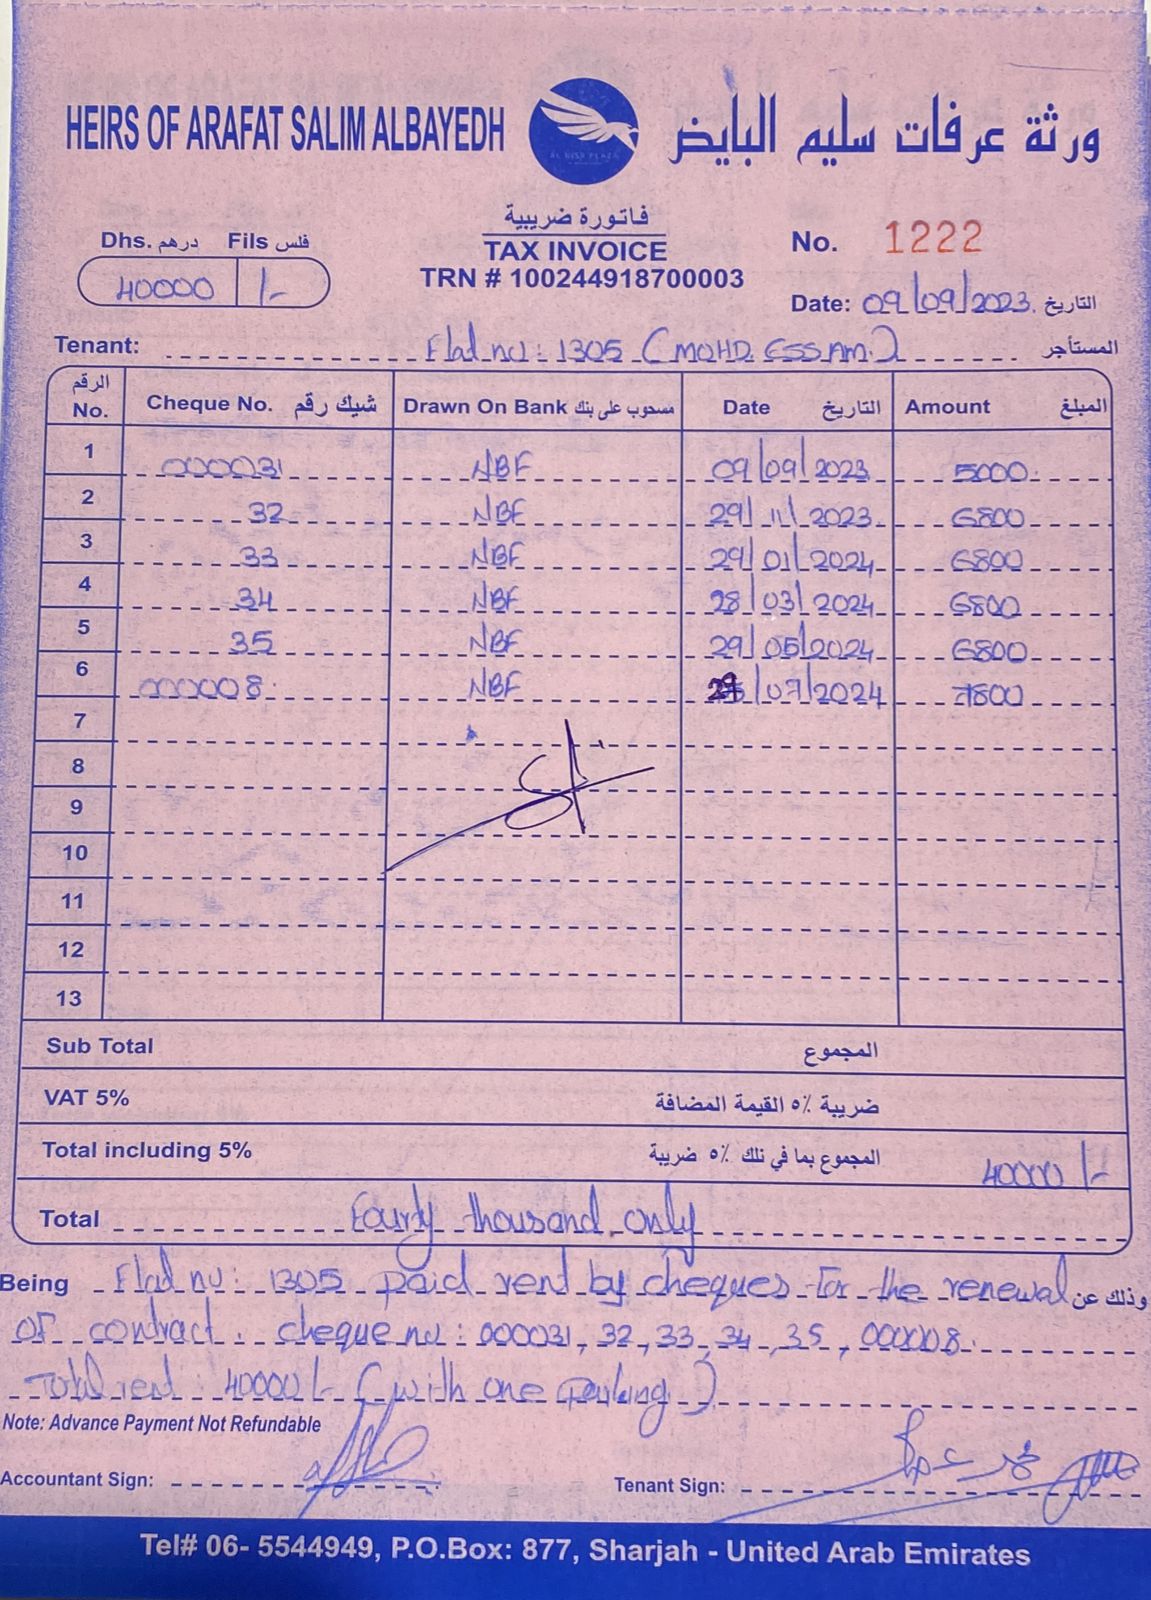 HEIRS OF ARAFAT SALIM ALBAYEDH
ورثة عرفات سليم البايض
AL NISR PLAZA
Dhs. درهم Fils فلس
40000 /-
فاتورة ضريبية
TAX INVOICE
TRN # 100244918700003
No. 1222
Date: 09/09/2023 التاريخ
Tenant: Flat no: 1305 (MOHD. ESSAM.) المستأجر
الرقم No. Cheque No. شيك رقم Drawn On Bank مسحوب على بنك Date التاريخ Amount المبلغ
1 000031 NBF 09/09/2023 5000
2 32 NBF 29/11/2023 6800
3 33 NBF 29/01/2024 6800
4 34 NBF 28/03/2024 6800
5 35 NBF 29/05/2024 6800
6 000008 NBF 29/07/2024 7800
7
8
9
10
11
12
13
Sub Total المجموع
VAT 5% ضريبة ٥٪ القيمة المضافة
Total including 5% المجموع بما في ذلك ٥٪ ضريبة 40000 /-
Total Fourty thousand only
Being Flat no: 1305 paid rent by cheques for the renewal وذلك عن
of contract. cheque no: 000031, 32, 33, 34, 35, 000008.
Total rent: 40000/- (with one Parking)
Note: Advance Payment Not Refundable
Accountant Sign:
Tenant Sign:
Tel# 06- 5544949, P.O.Box: 877, Sharjah - United Arab Emirates